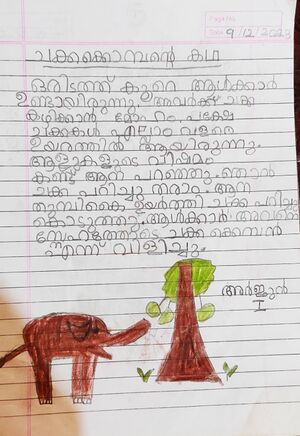 Page No.
Date 9/12/2023
ചക്കക്കൊമ്പന്റെ കഥ
ഒരിടത്ത് കുറെ ആൾക്കാർ
ഉണ്ടായിരുന്നു. അവർക്ക് ചക്ക
കഴിക്കാൻ മോഹം. പക്ഷേ
ചക്കകൾ എല്ലാം വളരെ
ഉയരത്തിൽ ആയിരുന്നു.
ആളുകളുടെ വിഷമം
കണ്ട് ആന പറഞ്ഞു. ഞാൻ
ചക്ക പറിച്ചു തരാം. ആന
തുമ്പികൈ ഉയർത്തി ചക്ക പറിച്ചു
കൊടുത്തു. ആൾക്കാർ അവനെ
സ്നേഹത്തോടെ ചക്ക കൊമ്പൻ
എന്ന് വിളിച്ചു.
അർജുൻ
I